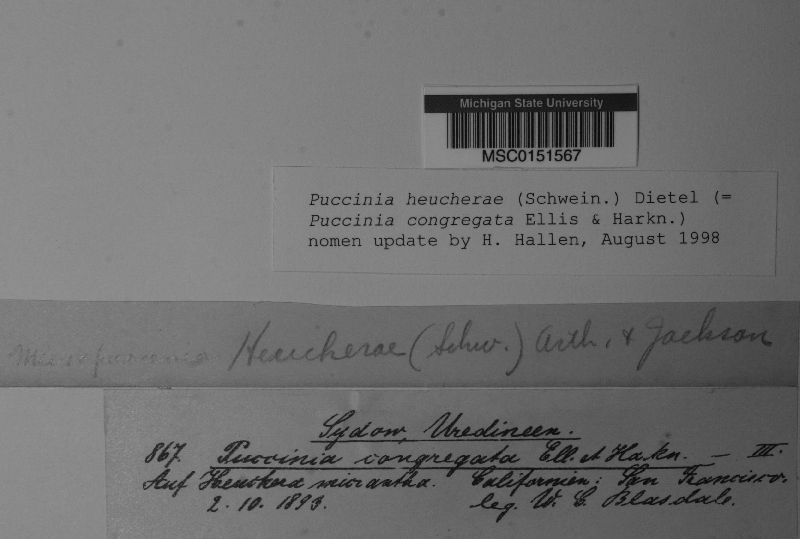 Michigan State University
MSC0151567
Puccinia heucherae (Schwein.) Dietel (=
Puccinia congregata Ellis & Harkn.)
nomen update by H. Hallen, August 1998
Micropuccinia Heucherae (Schw.) Arth. & Jackson
Sydow, Uredineen.
867. Puccinia congregata Ell. et Hakn. — III.
Auf Heuchera micrantha. Californien: San Francisco.
2. 10. 1893. leg. W. C. Blasdale.